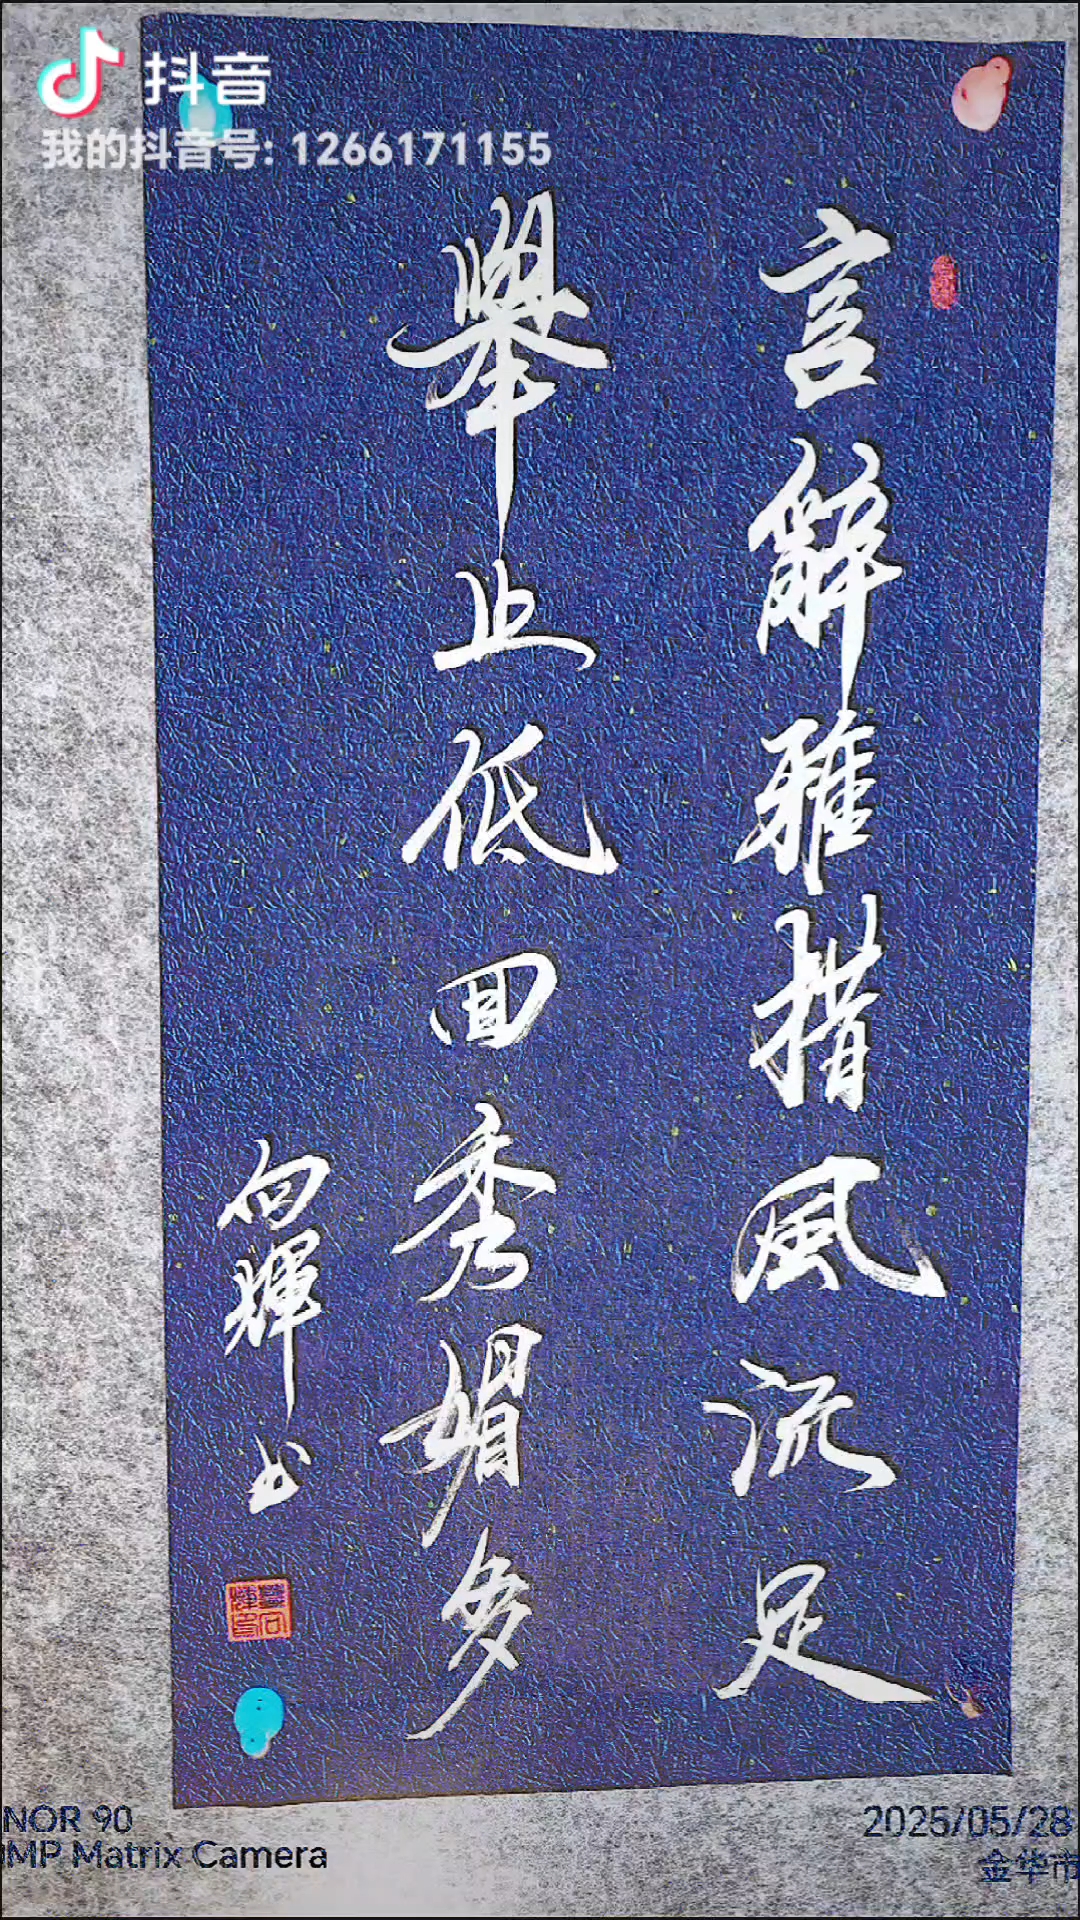 抖音
我的抖音号: 1266171155
言辭雅措風流足
舉止低回秀媚多
向輝书
NOR 90
MP Matrix Camera
2025/05/28
金华市